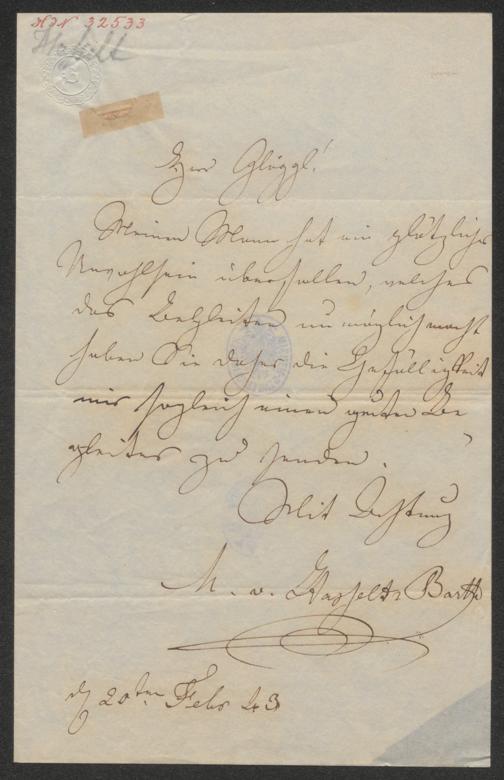 HIN 32533
Haßelt
Herr Glöggl!
Meinen Mann hat ein plötzliches
Unwohlsein überfallen, welches
das Begleiten unmöglich macht
haben Sie daher die Gefälligkeit
mir sogleich einen guten Be
gleiter zu senden.
Mit Achtung
M. v. Hasselt Barth
20ten Febr 43